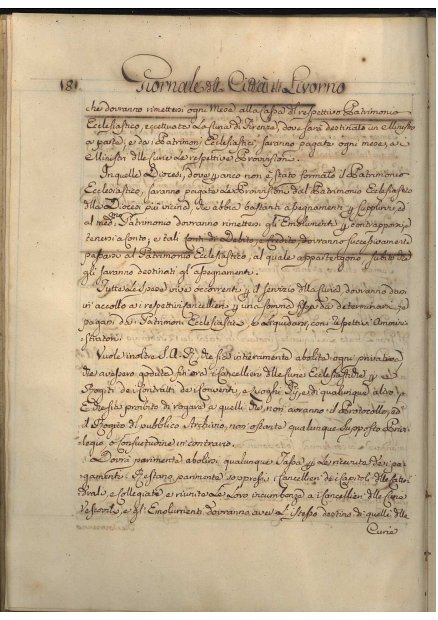 181 Giornale della Città di Livorno
che dovranno rimettersi ogni Mese alla Cassa del respettivo Patrimonio
Ecclesiastico, eccettuata La Curia di Firenze, dove sarà destinato un Ministro
a parte, e dai Patrimoni Ecclesiastici saranno pagate ogni mese, ai
Ministri delle Curie Le respettive Provvisioni.
In quelle Diocesi, dove p anco non è stato formato il Patrimonio
Ecclesiastico, saranno pagate Le Provvisioni dal Patrimonio Ecclesiastico
della Diocesi più vicina, che abbia bastanti assegnamenti p supplire, ed
al med.mo Patrimonio dovranno rimettersi gli Emolumenti p contrapporsi, e
tenersi a conto, e tali conti di Debito, e Credito dovranno successivamente
passare al Patrimonio Ecclesiastico, al quale appartengono, subito che
gli saranno destinati gli assegnamenti.
Tutte Le Spese vive occorrenti p il servizio della Curia dovranno darsi
in accollo ai respettivi Cancellieri p una somma fissa da determinarsi, e
pagarsi dai Patrimoni Ecclesiastici e Liquidarsi, con i respettivi Ammini-
stratori.
Vuole inoltre S. A. R., che sia intieramente abolita ogni privativa
che avessero goduta fin ora i Cancellieri delle Curie Ecclesiastiche p i
Rogiti dei Contratti dei Conventi, e Luoghi Pij, e di qualunque altro, e
che sia proibito di rogare a quelli che non avranno il Protocollo, ed
il Rogito di pubblico Archivio, non ostante qualunque supposto Privi-
legio, o consuetudine in contrario.
Dovrà parimente abolirsi qualunque Tassa p Le ricevute dei pa-
gamenti. Restano parimente soppressi i Cancellieri dei Capitoli delle Catte-
drali, e Collegiate e riunite Le Loro incumbenze ai Cancellieri delle Curie
Vescovili, e gl'Emolumenti dovranno avere L'istesso destino di quelli delle
Curie